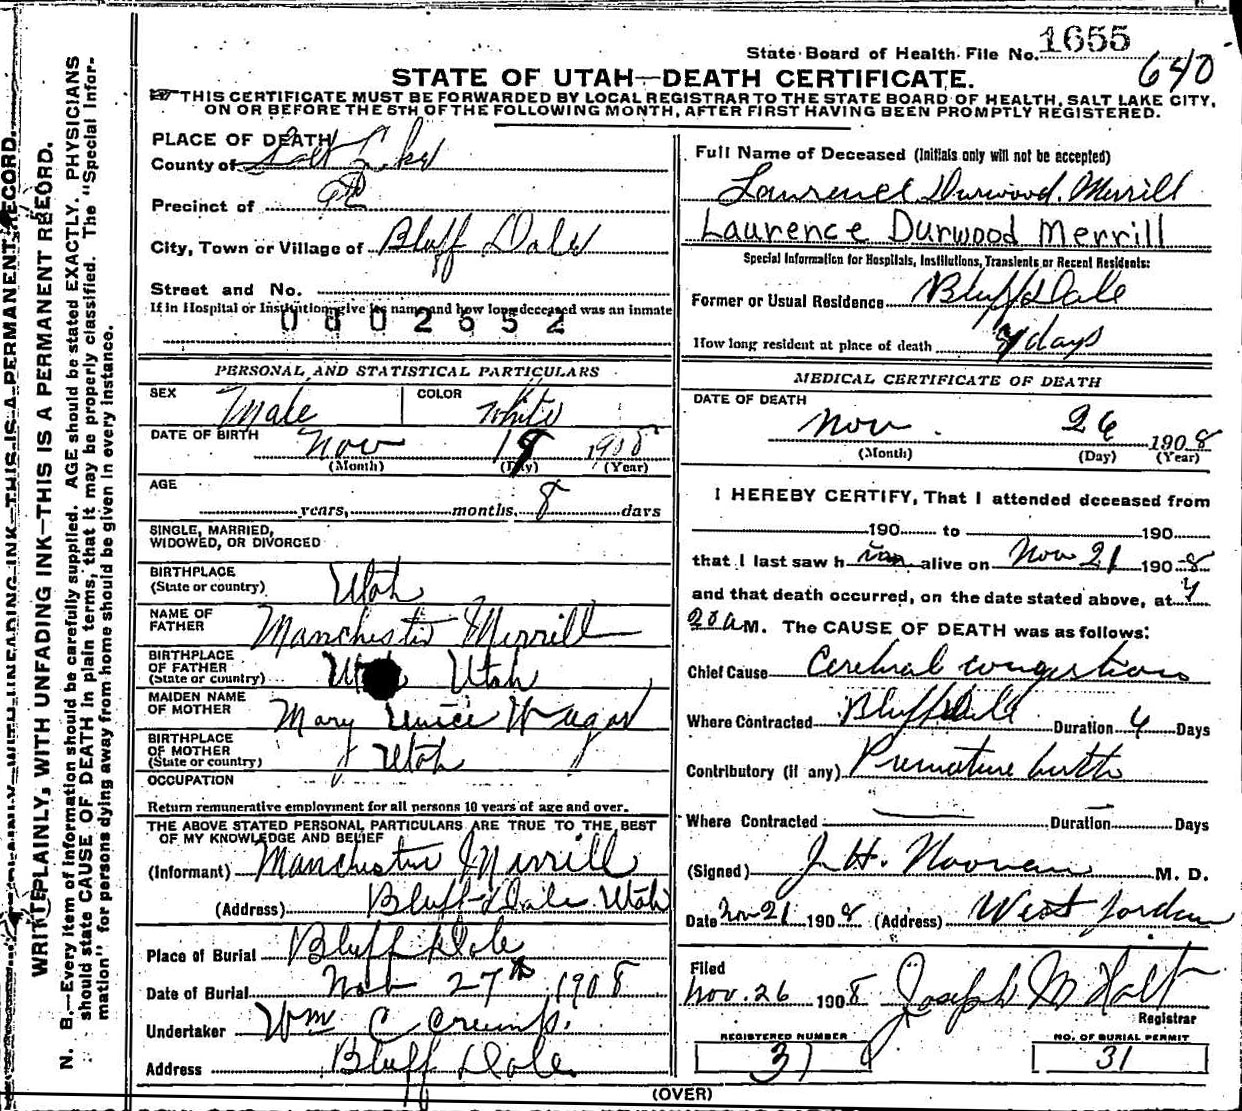 State Board of Health File No. 1655
640
STATE OF UTAH—DEATH CERTIFICATE.
THIS CERTIFICATE MUST BE FORWARDED BY LOCAL REGISTRAR TO THE STATE BOARD OF HEALTH, SALT LAKE CITY,
ON OR BEFORE THE 5TH OF THE FOLLOWING MONTH, AFTER FIRST HAVING BEEN PROMPTLY REGISTERED.
WRITE PLAINLY, WITH UNFADING INK—THIS IS A PERMANENT RECORD.
N. B.—Every item of information should be carefully supplied. AGE should be stated EXACTLY. PHYSICIANS
should state CAUSE OF DEATH in plain terms, that it may be properly classified. The "Special Infor-
mation" for persons dying away from home should be given in every instance.
PLACE OF DEATH
County of Salt Lake
Precinct of
City, Town or Village of Bluff Dale
Street and No.
If in Hospital or Institution, give its name and how long deceased was an inmate
0802652
PERSONAL AND STATISTICAL PARTICULARS
SEX Male COLOR White
DATE OF BIRTH Nov 1908
(Month) (Day) (Year)
AGE
years, months, 8 days
SINGLE, MARRIED,
WIDOWED, OR DIVORCED
BIRTHPLACE
(State or country) Utah
NAME OF
FATHER Manchester Merrill
BIRTHPLACE
OF FATHER
(State or country) Utah
MAIDEN NAME
OF MOTHER Mary Eunice
BIRTHPLACE
OF MOTHER
(State or country) Utah
OCCUPATION
Return remunerative employment for all persons 10 years of age and over.
THE ABOVE STATED PERSONAL PARTICULARS ARE TRUE TO THE BEST
OF MY KNOWLEDGE AND BELIEF
(Informant) Manchester Merrill
(Address) Bluff Dale Utah
Place of Burial Bluff Dale
Date of Burial Nov 27th 1908
Undertaker Wm C Crump.
Address Bluff Dale.
Full Name of Deceased (Initials only will not be accepted)
Laurence Durwood Merrill
Laurence Durwood Merrill
Special Information for Hospitals, Institutions, Transients or Recent Residents:
Former or Usual Residence Bluff Dale
How long resident at place of death days
MEDICAL CERTIFICATE OF DEATH
DATE OF DEATH
Nov. 26 1908
(Month) (Day) (Year)
I HEREBY CERTIFY, That I attended deceased from
190 to 190
that I last saw him alive on Nov 21 1908
and that death occurred, on the date stated above, at
M. The CAUSE OF DEATH was as follows:
Chief Cause Cerebral congestion
Where Contracted Bluffdale Duration 4 Days
Contributory (if any) Premature birth
Where Contracted — Duration — Days
(Signed) J. H. Noonan M. D.
Date Nov 21 1908 (Address) West Jordan
Filed
Nov. 26 1908 Joseph M Holt
Registrar
REGISTERED NUMBER
31
NO. OF BURIAL PERMIT
31
(OVER)